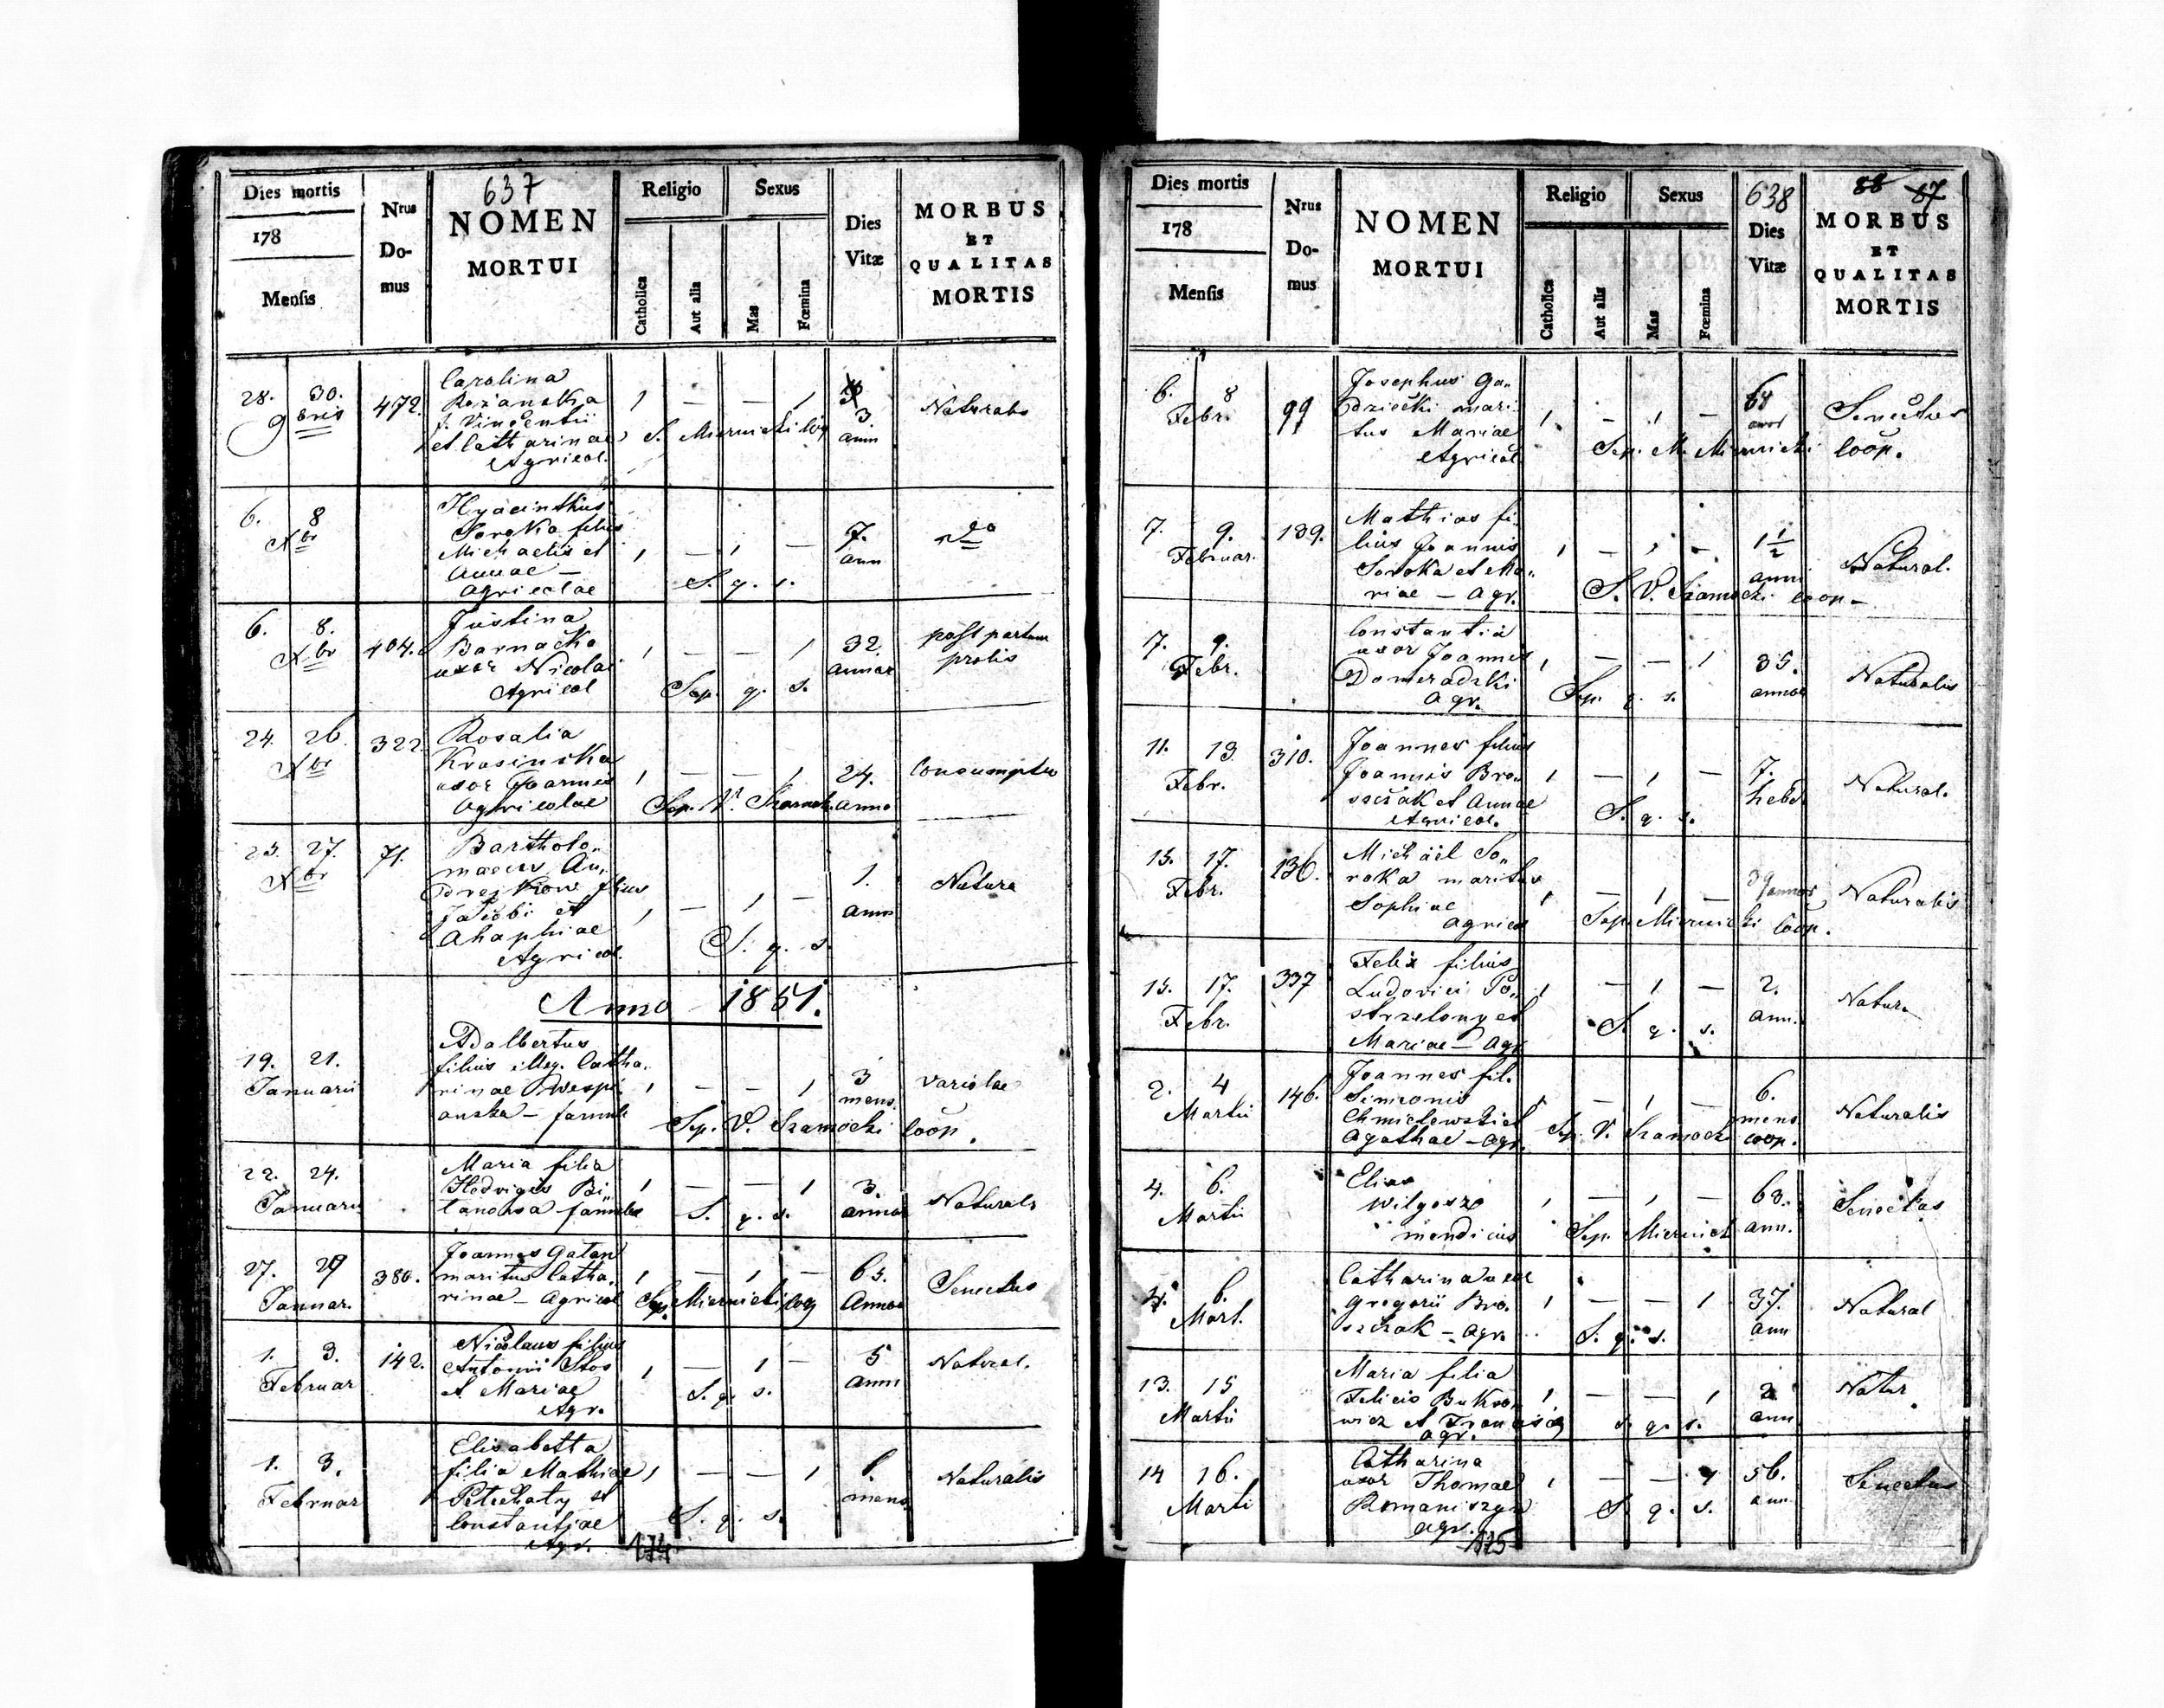 637
Dies mortis
178
Mensis
Nrus
Do-
mus
NOMEN
MORTUI
Religio
Catholica
Aut alia
Sexus
Mas
Fœmina
Dies
Vitæ
MORBUS
ET
QUALITAS
MORTIS
28. 30.
9 bris
472.
Carolina
f. Vincentii
et Catharinae
Agricol.
1 — — 1
S. Miernicki
3.
ann
Naturalis
6. 8
Xbr
Hyacinthus
Soroka filius
Michaelis et
Annae —
Agricolae
1 — 1 —
S. q. s.
7.
ann
do
6. 8.
Xbr
404.
Justina
Barnačka
uxor Nicolai
Agricol
1 — — 1
Sep. q. s.
32.
annor
post partum
prolis
24. 26
Xbr
322.
Rosalia
Krasinska
uxor Joannis
Agricolae
1 — — 1
Sep. V. Szamock.
24.
anno
Consumptio
25. 27.
Xbr
71.
Bartholo„
maeus An„
drejkow filius
Jacobi et
Ahaphiae
Agricol.
1 — 1 —
S. q. s.
1.
ann
Natura
Anno 1851.
19. 21.
Januarii
Adalbertus
filius illeg. Catha„
rinae
famula
1 — — 1
Sep. V. Szamocki coop.
3
mens.
variolae
22. 24.
Januarii
Maria filia
Hedvigis Bi„
famula
1 — — 1
S. q. s.
3.
annor
Naturalis
27. 29
Januar.
380.
Joannes Gatan
maritus Catha„
rinae — Agricol
1 — 1 —
Sep. Miernicki
65.
Annor
Senectus
1. 3.
Februar
142.
Nicolaus filius
Antonii Stos
et Mariae
Agr.
1 — 1 —
S. q. s.
5
ann
Natural.
1. 3.
Februar
Elisabetta
filia Mathiae
Petechaty et
Constantiae
Agr.
1 — — 1
S. q. s.
mens
Naturalis
174
88 87
638
Dies mortis
178
Mensis
Nrus
Do-
mus
NOMEN
MORTUI
Religio
Catholica
Aut alia
Sexus
Mas
Fœmina
Dies
Vitæ
MORBUS
ET
QUALITAS
MORTIS
6. 8
Febr.
99
Josephus Ga„
dziecki mari„
tus Mariae
Agricol
1 — 1 —
Sep. M. Miernicki coop.
64
annor
Senectus
7. 9.
Februar.
139.
Mathias fi„
lius Joannis
Soroka et Ma„
riae — Agr.
1 — 1 —
S. V. Szamocki coop —
1 1/2
anni
Natural.
7. 9.
Febr.
Constantia
uxor Joannis
Domeradzki
Agr.
1 — — 1
Sep. q. s.
35.
annor
Naturalis
11. 13
Febr.
310.
Joannes filius
Joannis Bro„
szczak et Annae
Agricol.
1 — 1 —
S. q. s.
7.
hebd.
Natural.
15. 17.
Febr.
136.
Michael So„
roka maritus
Sophiae
Agricol
1 — 1 —
Sep. Miernicki coop.
39 annor
Naturalis
15. 17.
Febr.
337
Felix filius
Ludovici Po„
strzelony et
Mariae — Agr.
1 — 1 —
S. q. s.
2.
ann.
Natura
2. 4
Martii
146.
Joannes fil.
Simeonis
Chmielewski et
Agathae — Agr.
1 — 1 —
Sep. V. Szamocki coop.
6.
mens
Naturalis
4. 6.
Martii
Elias
Wilgosz
mendicus
1 — 1 —
Sep. Miernicki
63.
ann.
Senectus
4. 6.
Mart.
Catharina uxor
Gregorii Bro„
szczak — Agr.
1 — — 1
S. q. s.
37.
ann
Natural
13. 15
Martii
Maria filia
Felicis Bukso„
wicz et Francisca
agr.
1 — — 1
S. q. s.
2
ann
Natur
14 16.
Marti
Catharina
uxor Thomae
Romaniszyn
agr.
1 — — 1
S. q. s.
56.
ann
Senectus
175